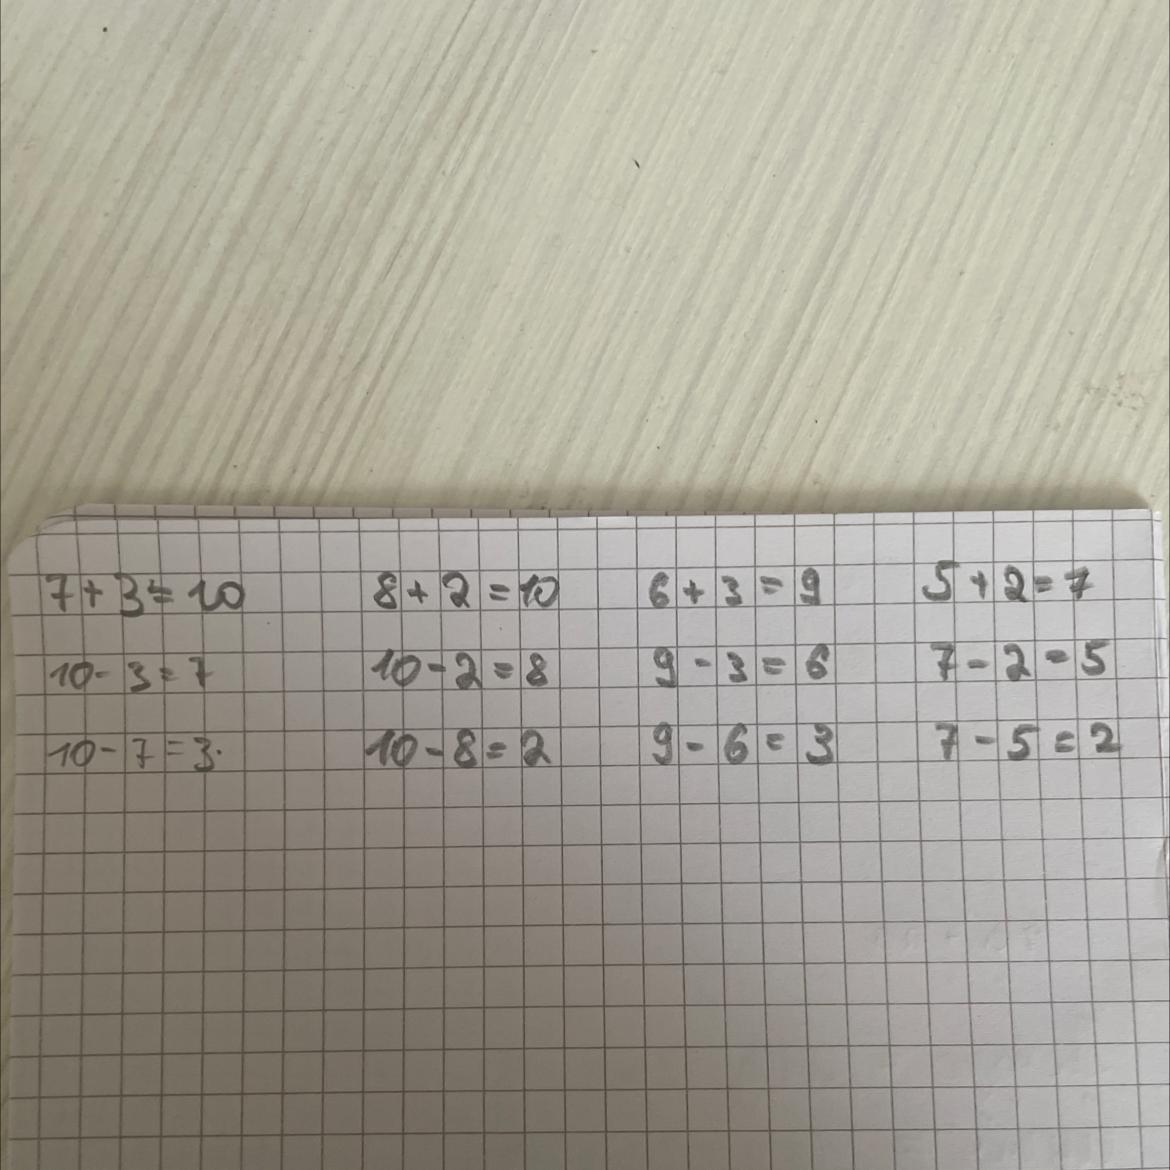 7+3=10 8+2=10 6+3=9 5+2=7
10-3=7 10-2=8 9-3=6 7-2=5
10-7=3. 10-8=2 9-6=3 7-5=2